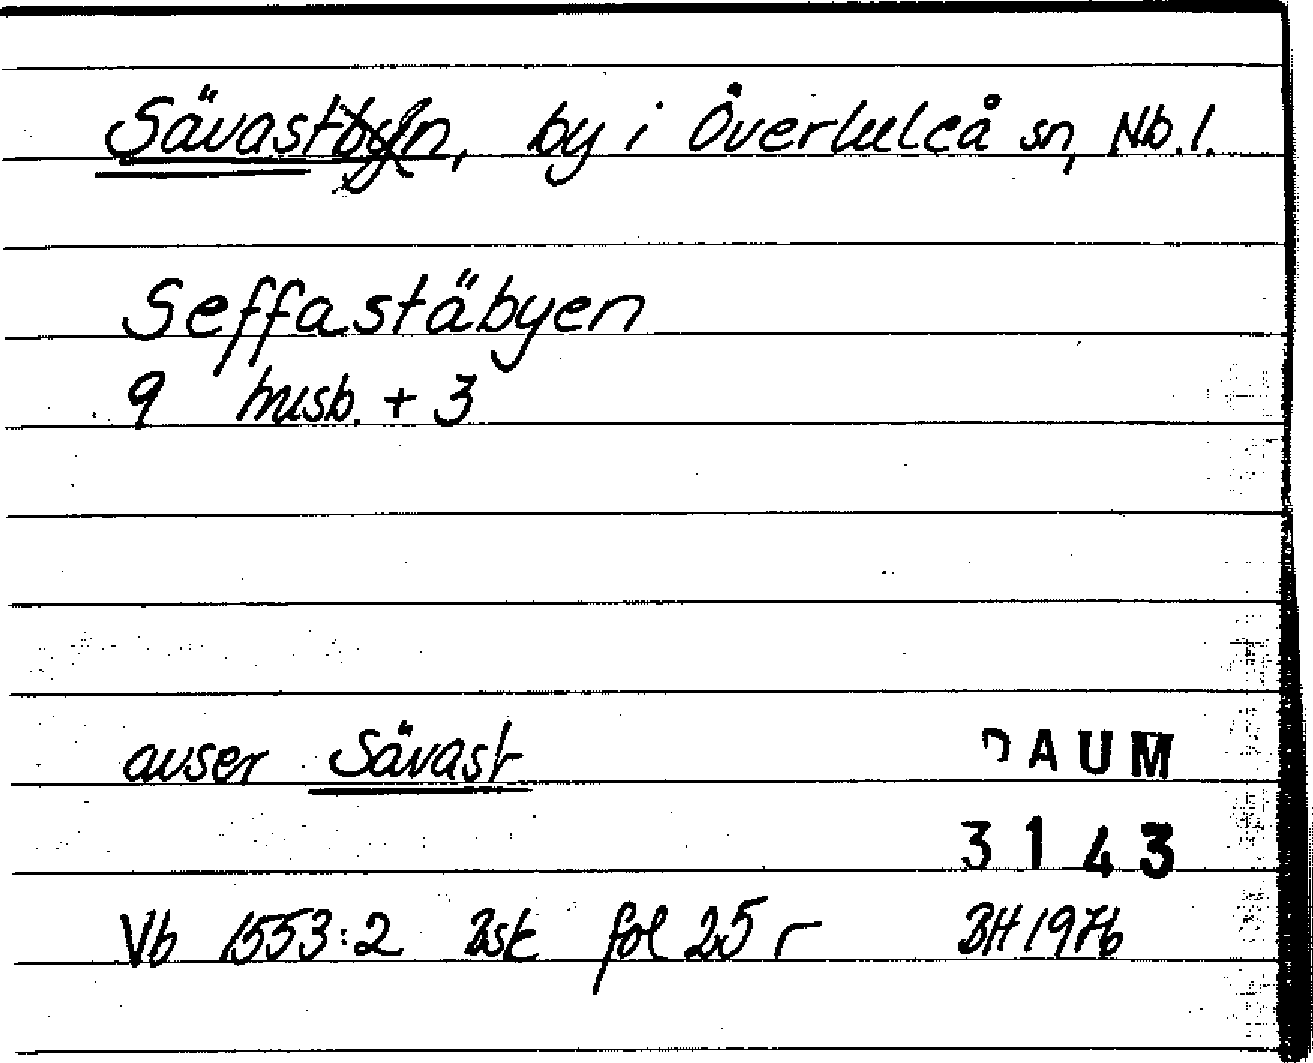 Sävast, by i Överluleå sn, Nb.l.
Seffastäbyen
9 husb. + 3
avser Sävast
DAUM
3143
Vb 1553:2 Bsk fol 25 r BH 1976